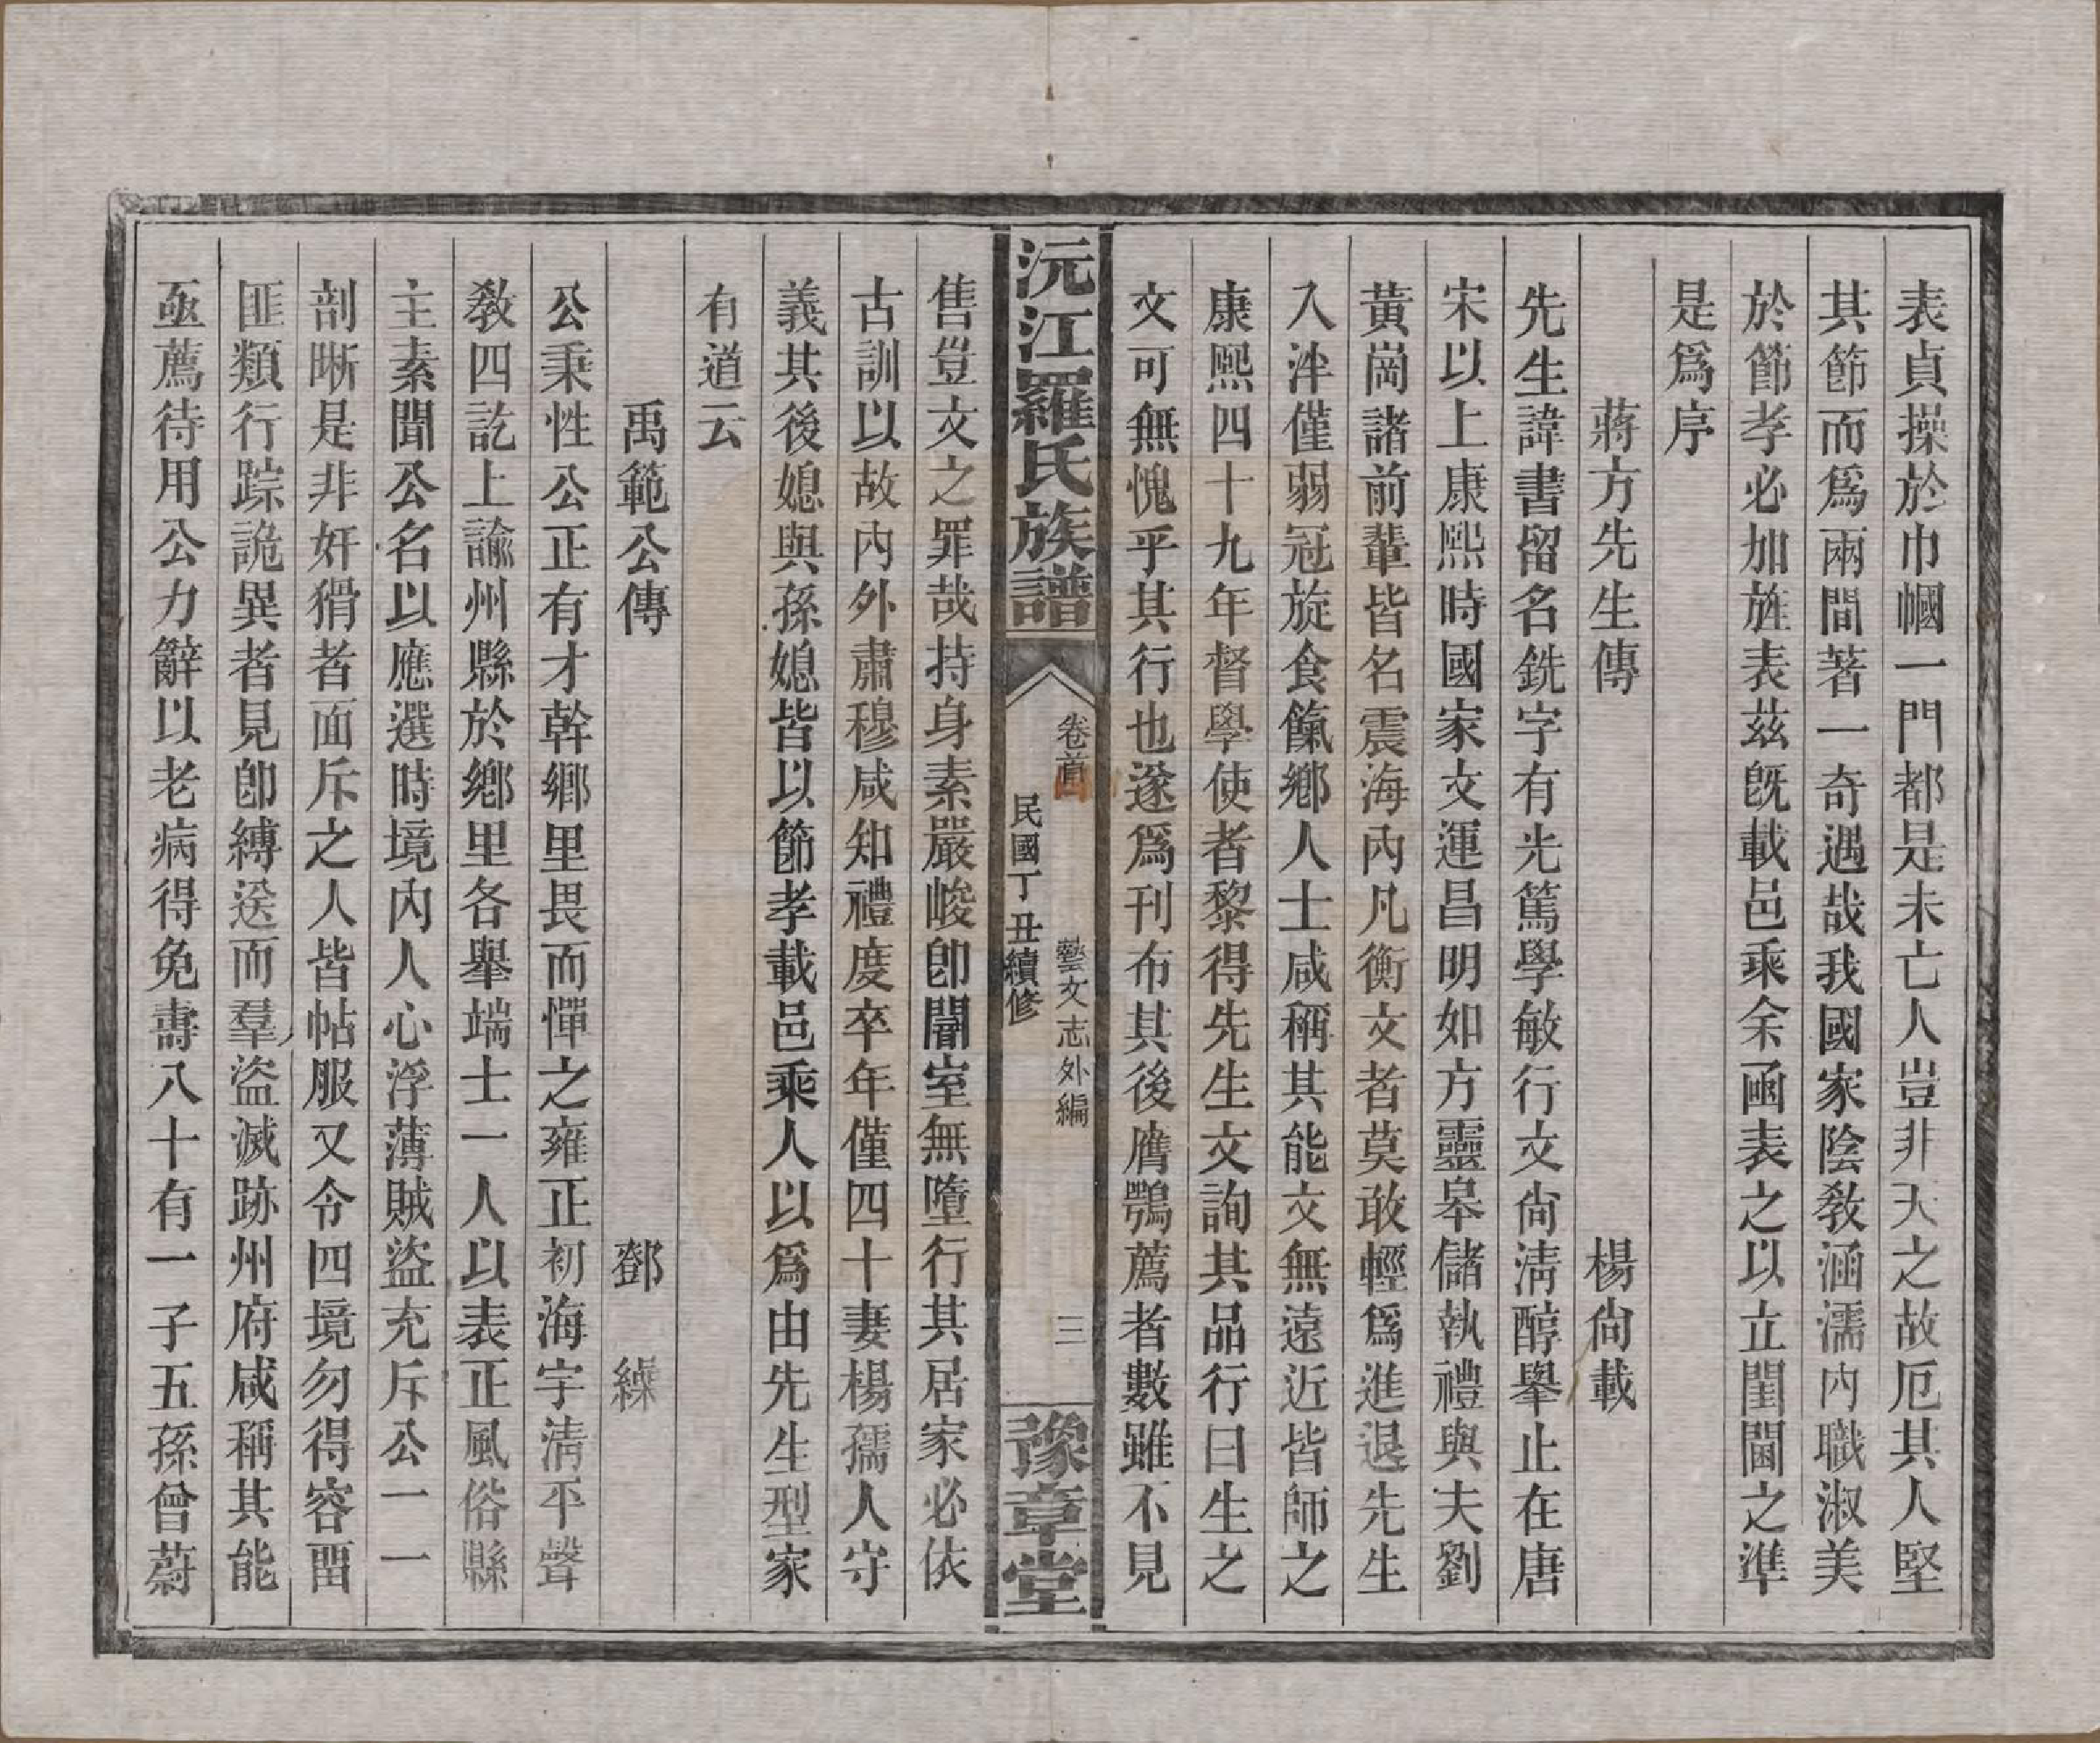 表貞操於巾幗一門都是未亡人豈非天之故厄其人堅
其節而爲兩間著一奇遇哉我國家陰敎涵濡內職淑美
於節孝必加旌表茲旣載邑乘余函表之以立閨閫之準
是爲序
蔣方先生傳 楊尙載
先生諱書留名銑字有光篤學敏行文尙淸醇舉止在唐
宋以上康熙時國家文運昌明如方靈皋儲執禮與夫劉
黃崗諸前輩皆名震海內凡衡文者莫敢輕爲進退先生
入泮僅弱冠旋食餼鄕人士咸稱其能文無遠近皆師之
康熙四十九年督學使者黎得先生文詢其品行曰生之
文可無愧乎其行也遂爲刊布其後膺鶚薦者數雖不見
沅江羅氏族譜
卷首 藝文志外編 三
民國丁丑續修
豫章堂
售豈文之罪哉持身素嚴峻卽闇室無墮行其居家必依
古訓以故內外肅穆咸知禮度卒年僅四十妻楊孺人守
義其後媳與孫媳皆以節孝載邑乘人以爲由先生型家
有道云
禹範公傳 鄧繰
公秉性公正有才幹鄕里畏而憚之雍正初海宇淸平聲
敎四訖上諭州縣於鄕里各舉端士一人以表正風俗縣
主素聞公名以應選時境內人心浮薄賊盜充斥公一一
剖晰是非奸猾者面斥之人皆帖服又令四境勿得容畱
匪類行踪詭異者見卽縛送而羣盜滅跡州府咸稱其能
亟薦待用公力辭以老病得免壽八十有一子五孫曾蔚